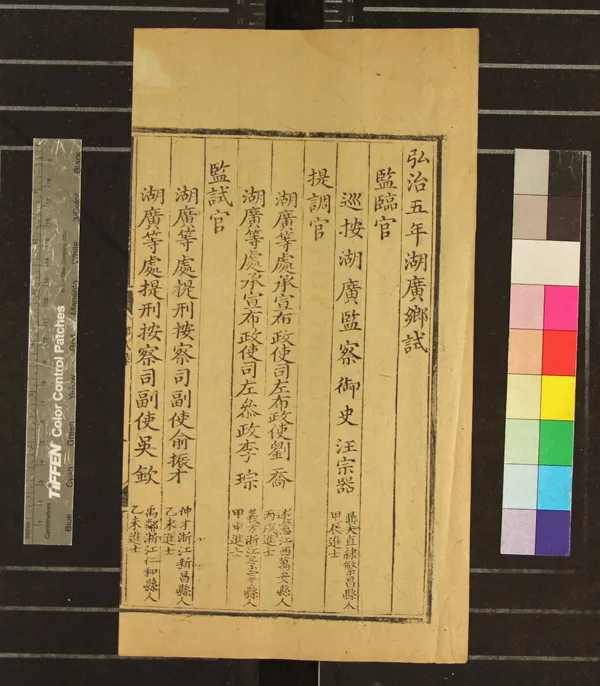 弘治五年湖廣鄉試
監臨官
巡按湖廣監察御史汪宗器
鼎夫直隸繁昌縣人
甲辰進士
提調官
湖廣等處承宣布政使司左布政使劉喬
述憲江西萬安縣人
丙戌進士
湖廣等處承宣布政使司左叅政李琮
義方浙江景寧縣人
甲申進士
監試官
湖廣等處提刑按察司副使俞振才
仲才浙江新昌縣人
乙未進士
湖廣等處提刑按察司副使吳欽
禹鄰浙江仁和縣人
乙未進士
TIFFEN Color Control Patches
Centimetres
Blue
Cyan
Green
Yellow
Red
Magenta
White
Black